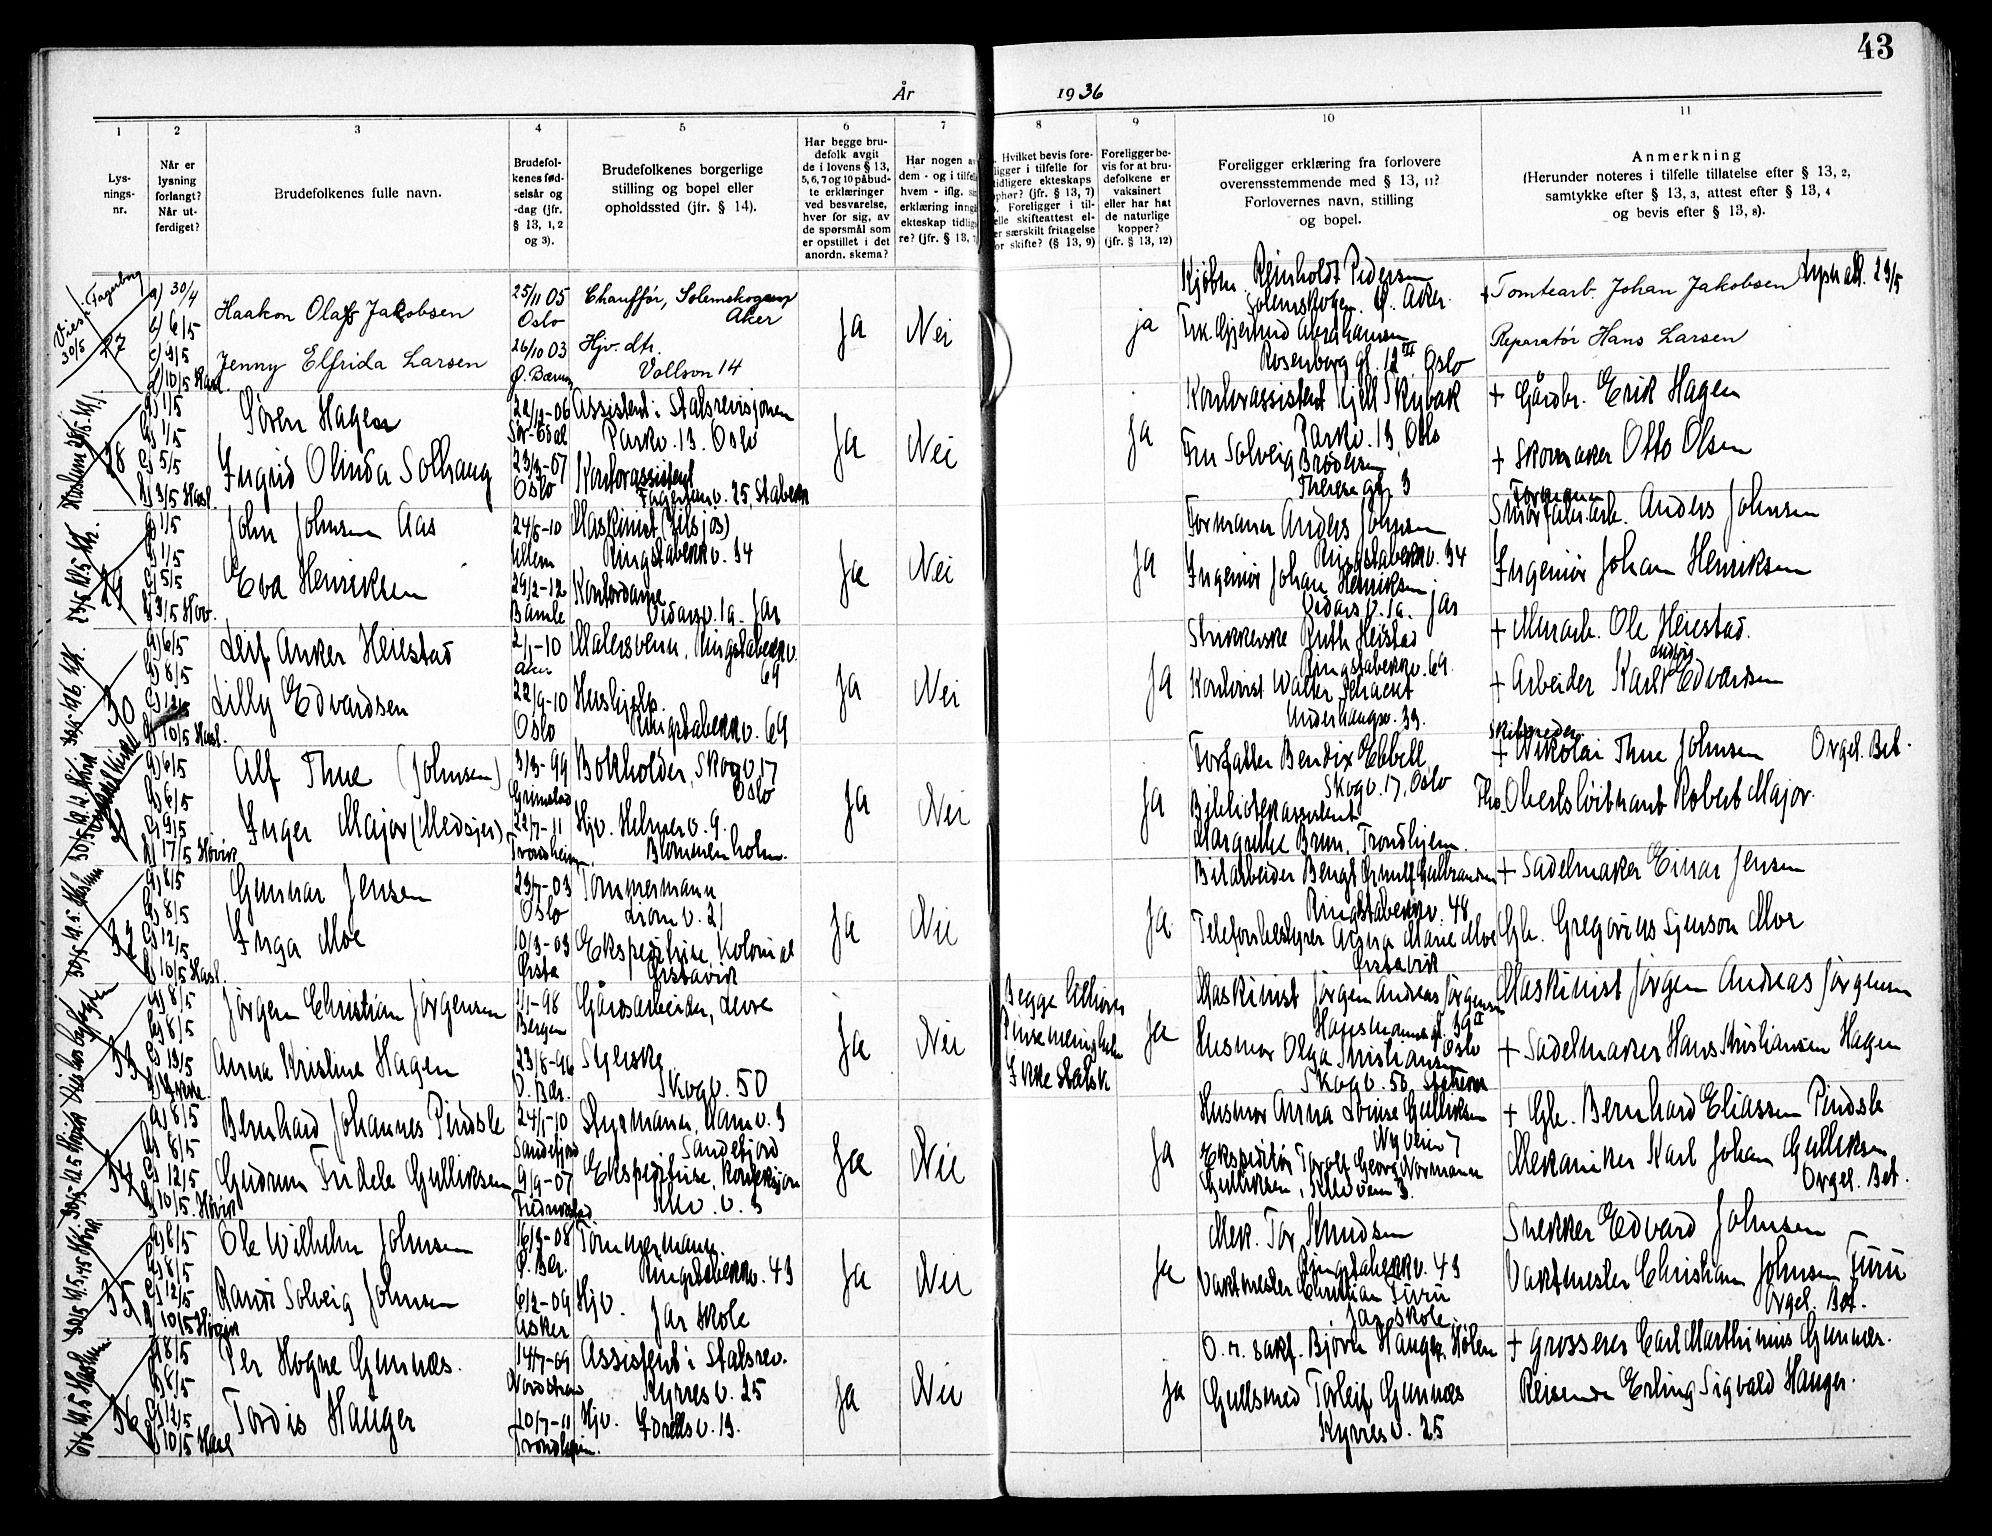 43
År 1936
1 2 3 4 5 6 7 8 9 10 11
Lys-
nings-
nr.
Når er
lysning
forlangt?
Når ut-
ferdiget?
Brudefolkenes fulle navn.
Brudefol-
kenes fød-
selsår og
-dag (jfr.
§ 13, 1, 2
og 3).
Brudefolkenes borgerlige
stilling og bopel eller
opholdssted (jfr. § 14).
Har begge bru-
defolk avgit
de i lovens § 13,
5, 6, 7 og 10 påbud-
te erklæringer
ved besvarelse,
hver for sig, av
de spørsmål som
er opstillet i det
anordn. skema?
Har nogen a
dem - og i tilfel
hvem - iflg. si
erklæring inng
ekteskap tidlig
re? (jfr. § 13,
Hvilket bevis fore-
ligger i tilfelle for
tidligere ekteskaps
ophør? (jfr. § 13, 7)
Foreligger i til-
elle skifteattest el-
er særskilt fritagelse
or skifte? (§ 13, 9)
Foreligger be-
vis for at bru-
defolkene er
vaksinert
eller har hat
de naturlige
kopper?
(jfr. § 13, 12)
Foreligger erklæring fra forlovere
overensstemmende med § 13, 11?
Forlovernes navn, stilling
og bopel.
Anmerkning
(Herunder noteres i tilfelle tillatelse efter § 13, 2,
samtykke efter § 13, 3, attest efter § 13, 4
og bevis efter § 13, 8).
Vies i Fagerborg
30/5
27
a) 30/4
b) 6/5
c) 9/5
d) 10/5
Haakon Olaf Jakobsen
Jenny Elfrida Larsen
25/11 05
Oslo
26/10 03
Ø. Bærum
Chauffør, Solemskogen
Aker
Hjv. dtr.
Vollsvn 14
Ja
Nei
ja
Kjøbm. Reinholdt Pedersen
Solemskogen. Ø. Aker.
Frk. Gjertrud Abrahamsen
Rosenborg gt. 12 III Oslo
+ Tomtearb. Johan Jakobsen
Reparatør Hans Larsen
28
a) 1/5
b) 1/5
c) 5/5
d) 3/5 Hasl.
Søren Hagen
Ingrid Olinda Solhaug
22/12-06
Sør-Odal
23/3-07
Oslo
Assistent i Statsrevisjonen
Parkv. 13. Oslo
Kontorassistent
Fagertunv. 25, Stabekk
Ja
Nei
Ja
Kontorassistent Kjell Skybak
Parkv. 13, Oslo
Fru Solveig Brodersen
Theresegt. 3
+ Gårdbr. Erik Hagen
+ Skomaker Otto Olsen
29
a) 1/5
b) 1/5
c) 5/5
d) 3/5 Høv.
John Johnsen Aas
Eva Henriksen
24/5-10
29/2-12
Bamle
Maskinist (Tilsjøs)
Ringstabekkv. 34
Kontordame
Vidarsv. 1a. Jar
Ja
Nei
Ja
Formann Anders Johnsen
Ringstabekkv. 34
Ingeniør Johan Henriksen
Vidars v. 1a. Jar
Formann
Smørfabr.arb. Anders Johnsen
Ingeniør Johan Henriksen
30
a) 6/5
b) 8/5
c) 12/5
d) 10/5 Hasl.
Leif Anker Heiestad
Lilly Edvardsen
2/1-10
Aker
22/9-10
Oslo
Malersvenn, Ringstabekkv.
69
Hushjelp.
Ringstabekkv. 69
Ja
Nei
Ja
Strikkerske Ruth Heistad
Ringstabekkv. 69.
Kontorist Walter Schacht
Underhaugsv. 33.
+ Murarb. Ole Heiestad.
Ludvig
+ Arbeider Karl Edvardsen
a) 6/5
b) 6/5
c) 9/5
d) 17/5 Høvik
Alf Thue (Johnsen)
Inger Major (Medsjer)
3/3-99
Grimstad
22/7-11
Trondheim
Bokholder, Skogv. 17
Oslo
Hjv. Helmerv. 9.
Blommenholm.
Ja
Nei
Ja
Forfatter Bendix Ebbell
Skogv. 17, Oslo
Bibliotekassistent
Margrethe Brun, Trondhjem.
Skibsreder
+ Nikolai Thue Johnsen Orgel. Bet.
Oberstløitnant Robert Major.
32
a) 8/5
b) 8/5
c) 12/5
d) 10/5 Hasl.
Gunnar Jensen
Inga Moe
23/7-03
Oslo
10/3-03
Ørsta
Tømmermann
Lionv. 21
Ekspeditrise, Kolonial
Ørstavik
Ja
Nei
Ja
Bilarbeider Bengt Ornulf Gulbrandsen
Ringstabekkv. 48
Telefonbestyrer Anna Marie Moe
Ørstavik
+ Sadelmaker Einar Jensen
Gb. Gregorius Sjurson Moe
33
a) 8/5
b) 8/5
c) 13/5
Jørgen Christian Jørgensen
Anna Kristine Hagen
1/1-98
Bergen
23/8-96
V. Bær.
Gårdsarbeider,
Syerske
Skogv. 50
Ja
Nei
Begge tilhører
Pinsemenigheten
Ikke statsk
Ja
Maskinist Jørgen Andreas Jørgensen
39 II
Oslo
Husmor Olga Kristiansen
Skogv. 50, Stabekk
Maskinist Jørgen Andreas Jørgensen
+ Sadelmaker Hans Kristiansen Hagen
34
a) 8/5
b) 8/5
c) 12/5
d) 10/5. Høvik
Bernhard Johannes Pindsle
Gudrun Fredele Gulliksen
24/1-10
Sandefjord
9/9-07
Fredrikstad
Styrmann, Kamv. 3
Sandefjord
Ekspeditrise, Konfeksjon
Ja
Nei
Ja
Husmor Anna Lovise Gulliksen
Nyveien 7
Ekspeditør Torolf Georg Normann
Gulliksen,
+ Gb. Bernhard Eliassen Pindsle
Mekaniker Karl Johan Gulliksen
Orgel. Bet.
35
a) 8/5
b) 8/5
c) 12/5
d) 10/5 Høvik
Ole Wilhelm Johnsen
Randi Solveig Johnsen
16/3-08
Ø. Bær.
6/2-09
Asker
Tømmermann.
Ringstabekkv. 43
Hjv.
Jar skole
Ja
Nei
Ja
Mek. Tor Knudsen
Ringstabekkv. 43
Vaktmester Christian Furu
Jar skole.
Snekker Edvard Johnsen
Vaktmester Christian Johnsen Furu
Orgel. Bet.
36
a) 8/5
b) 8/5
c) 12/5
d) 10/5 Hasl
Per Hogne Gunnæs.
Tordis Hauger
14/7-09
Nordstrand
20/7-11
Trondheim.
Assistent i Statsrev.
Kyrresv. 25
Hjv. Idrettsv. 13.
Ja
Nei
Ja
O. r. sakf. Bjørn Hauger, Hølen
Gullsmed Torleif Gunnæs
Kyrresv. 25
+ grosserer Carl Marthinius Gunnæs.
Reisende Erling Sigvald Hauger.